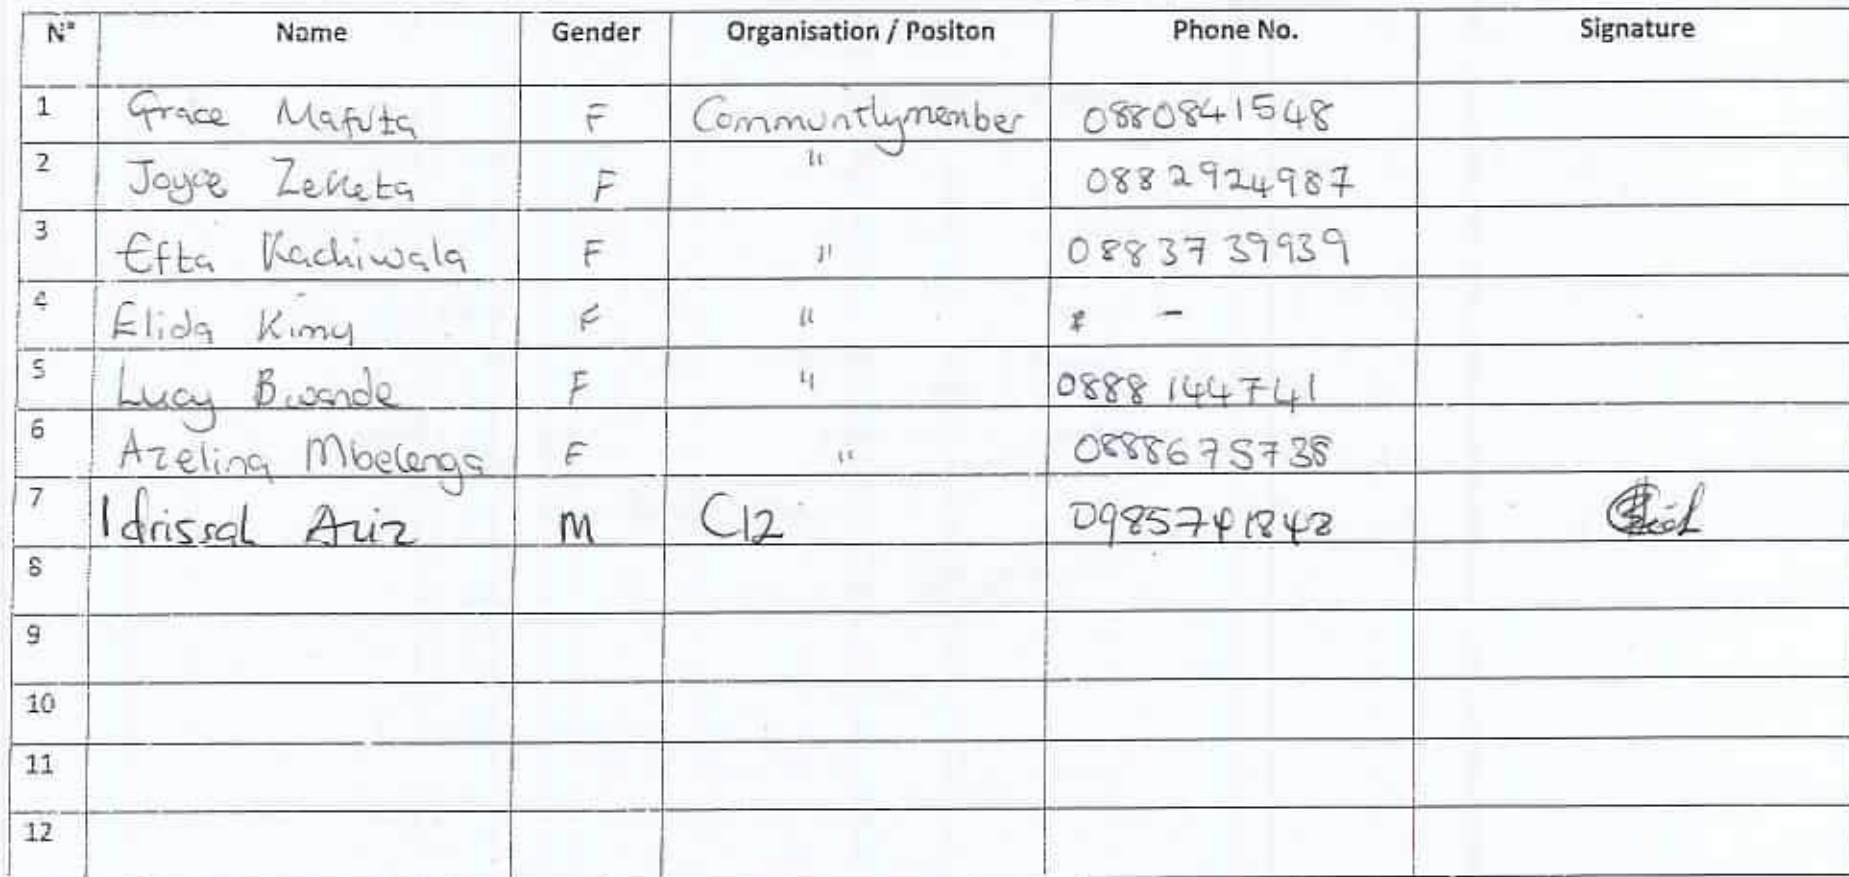 N° Name Gender Organisation / Positon Phone No. Signature
1 Grace Mafuta F Communtlymember 0880841548
2 Joyce Zeketa F " 0882924987
3 Efta Kachiwala F " 0883739939
4 Elida Kimu F " -
5 Lucy Bwande F " 0888144741
6 Azelina Mbelenga F " 0888675738
7 Idrissah Aziz M C12 0985741842
8
9
10
11
12